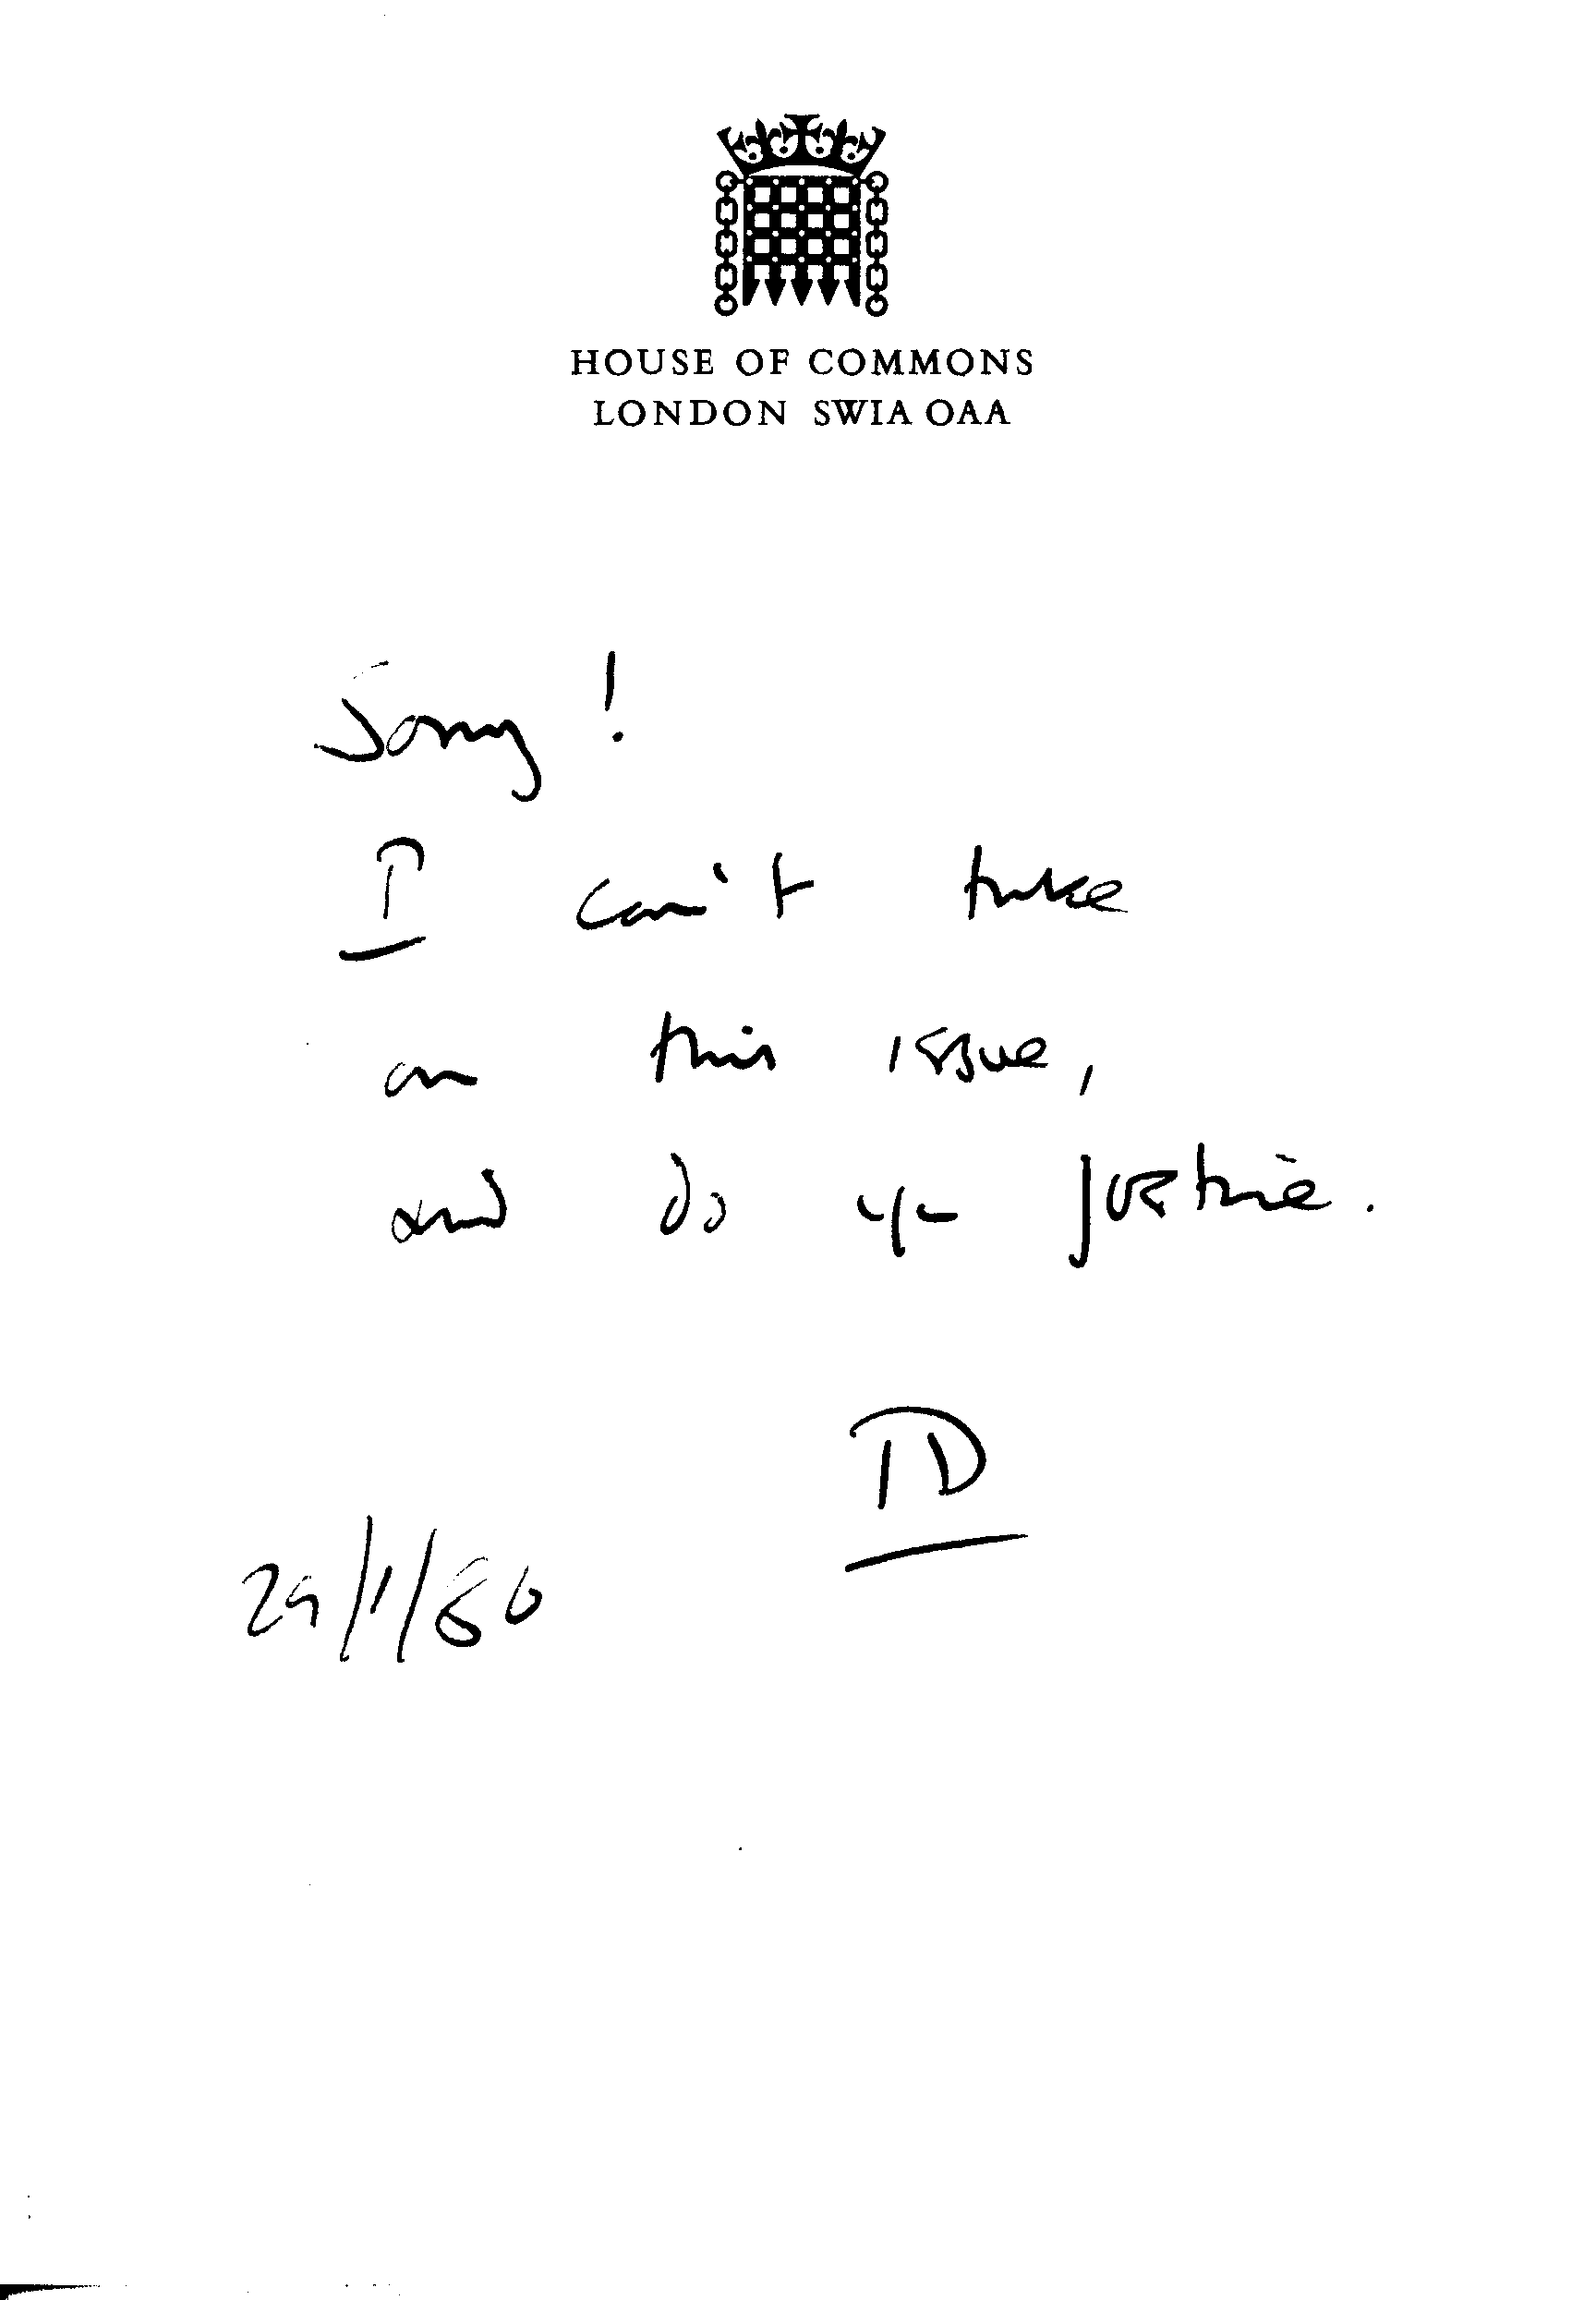 HOUSE OF COMMONS
LONDON SW1A 0AA
Sorry!
I can't take
on this issue,
and do you justice.
TD
29/1/80